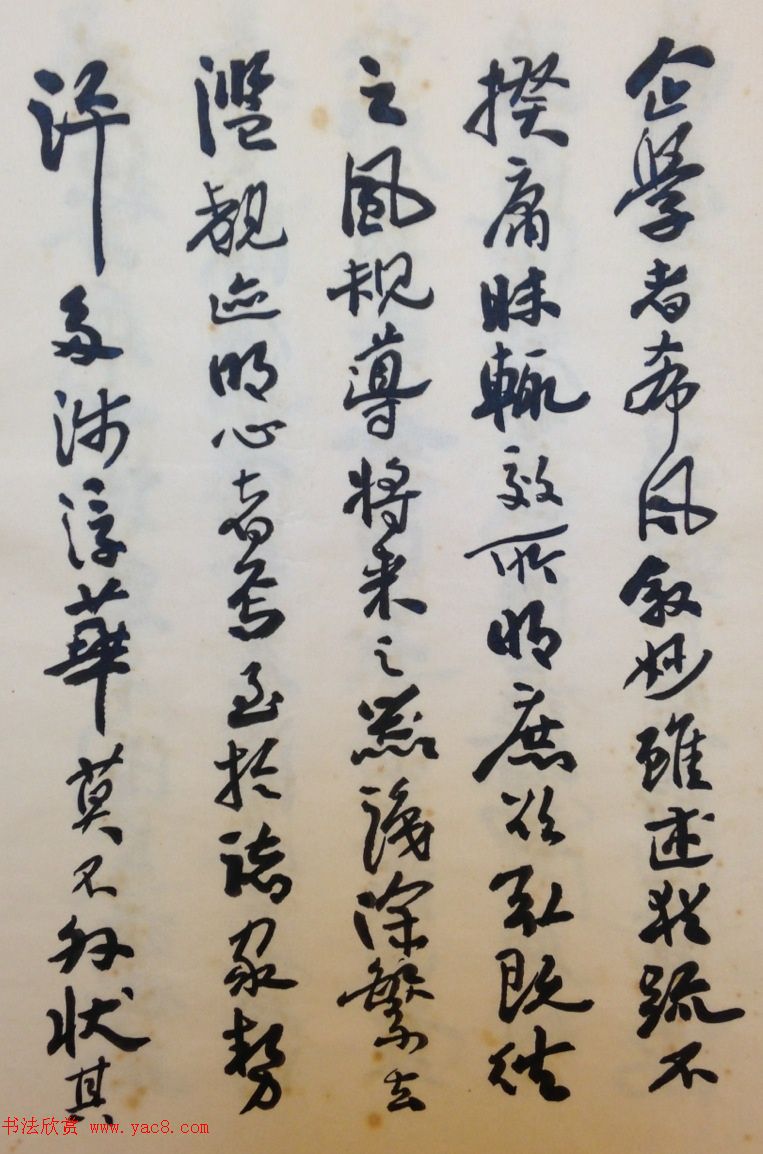 企學者希風敘妙雖述猶疏不
揆庸昧輒效所明庶欲弘既往
之風規導將來之器識除繁去
濫覩迹明心者焉至於諸家勢
評多涉浮華莫不外狀其
书法欣赏 www.yac8.com